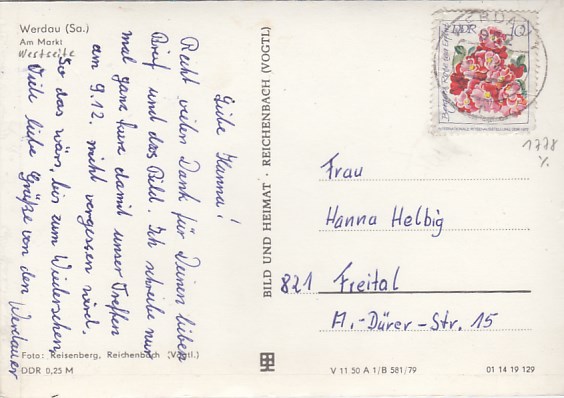 Werdau (Sa.)
Am Markt
Westseite
Liebe Hanna!
Recht vielen Dank für Deinen lieben
Brief und das Bild. Ich schreibe nur
mal ganz kurz damit unser Treffen
am 9.12. nicht vergessen wird.
So das wärs, bis zum Wiedersehen,
Viele liebe Grüße von den Werdauer
Foto: Reisenberg, Reichenbach (Vogtl.)
DDR 0,25 M
BILD UND HEIMAT · REICHENBACH (VOGTL)
DDR 10
1778
Frau
Hanna Helbig
821 Freital
A.-Dürer-Str. 15
V 11 50 A 1/B 581/79
01 14 19 129